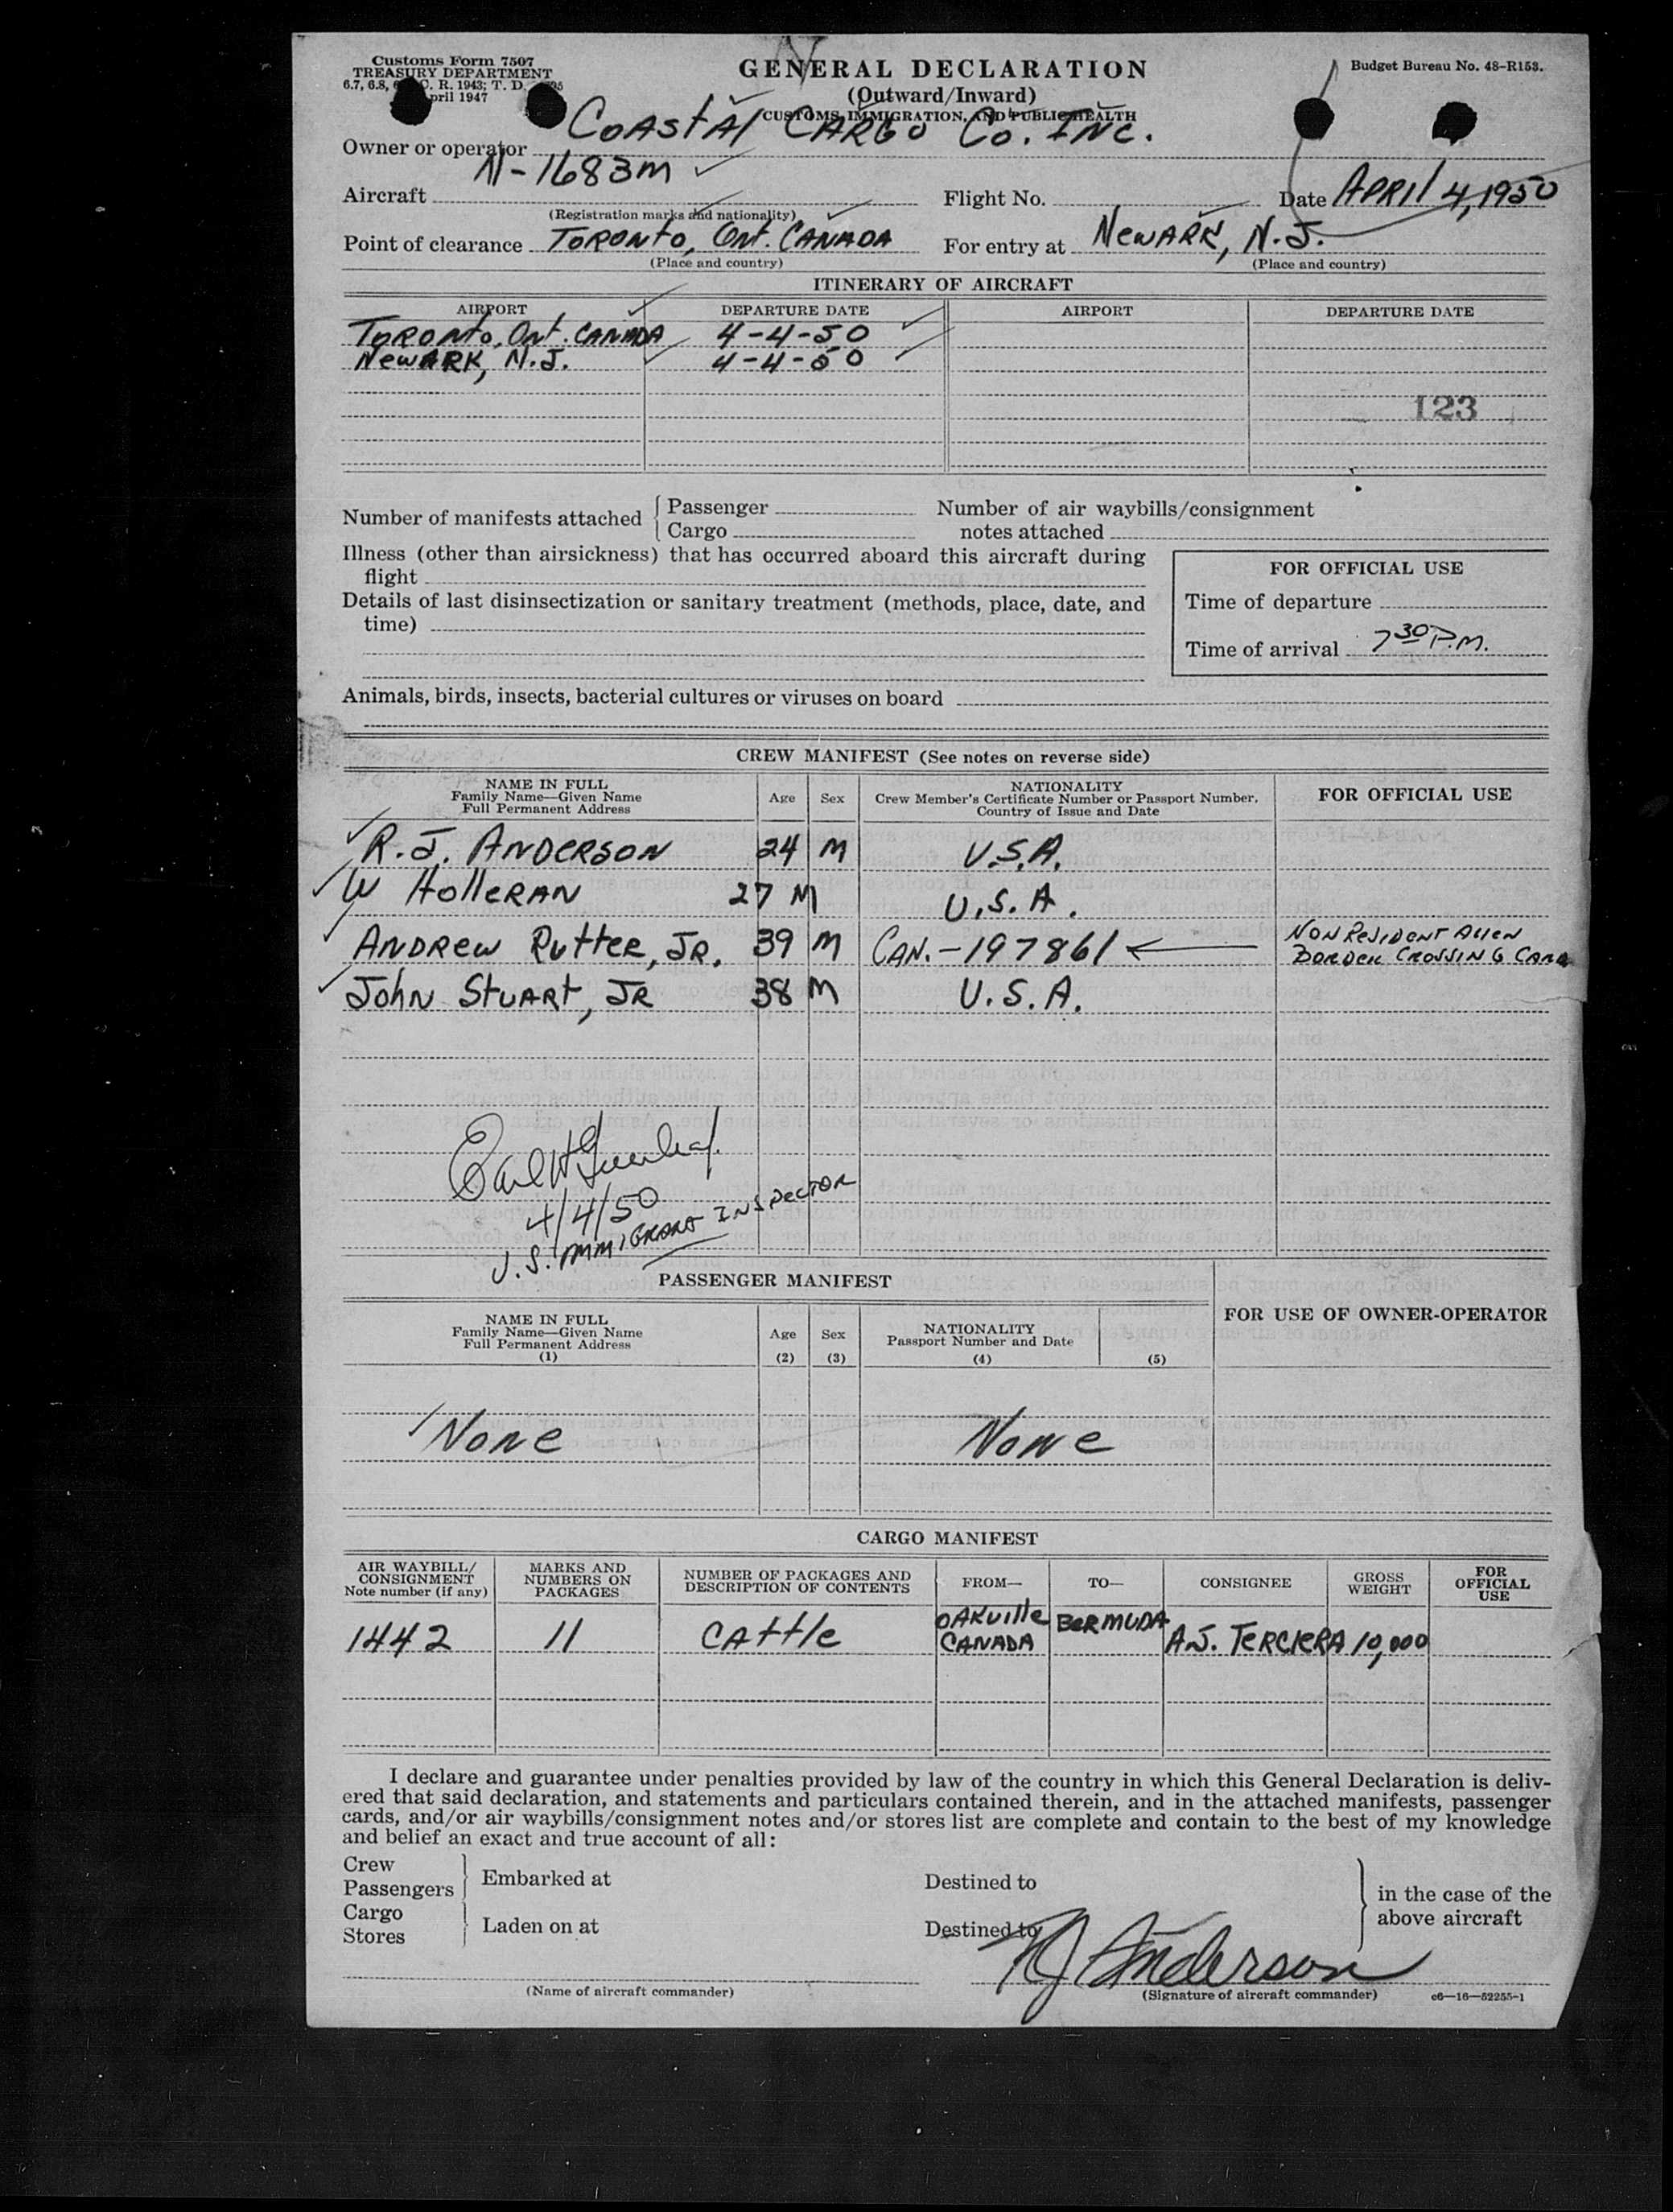 Customs Form 7507
TREASURY DEPARTMENT
6.7, 6.8, C. R. 1943; T. D.
April 1947
GENERAL DECLARATION
(Outward/Inward)
CUSTOMS, IMMIGRATION, AND PUBLIC HEALTH
Budget Bureau No. 48-R153.
Owner or operator COASTAL CARGO CO. INC.
Aircraft N-1683M Flight No. Date APRIL 4, 1950
(Registration marks and nationality)
Point of clearance TORONTO, Ont. CANADA For entry at NEWARK, N.J.
(Place and country) (Place and country)
ITINERARY OF AIRCRAFT
AIRPORT DEPARTURE DATE AIRPORT DEPARTURE DATE
TORONTO, Ont. CANADA 4-4-50
NEWARK, N.J. 4-4-50
123
Number of manifests attached Passenger Cargo
Number of air waybills/consignment notes attached
Illness (other than airsickness) that has occurred aboard this aircraft during
flight
Details of last disinsectization or sanitary treatment (methods, place, date, and
time)
FOR OFFICIAL USE
Time of departure
Time of arrival 7 30 P.M.
Animals, birds, insects, bacterial cultures or viruses on board
CREW MANIFEST (See notes on reverse side)
NAME IN FULL
Family Name—Given Name
Full Permanent Address
Age Sex
NATIONALITY
Crew Member's Certificate Number or Passport Number,
Country of Issue and Date
FOR OFFICIAL USE
R. J. ANDERSON 24 M U.S.A.
W HOLLERAN 27 M U.S.A.
ANDREW RUTTER, JR. 39 M CAN.-197861 NON RESIDENT ALIEN
BORDER CROSSING CARD
JOHN STUART, JR 38 M U.S.A.
4/4/50
U.S. IMMIGRANT INSPECTOR
PASSENGER MANIFEST
NAME IN FULL
Family Name—Given Name
Full Permanent Address
(1)
Age
(2)
Sex
(3)
NATIONALITY
Passport Number and Date
(4) (5)
FOR USE OF OWNER-OPERATOR
None None
CARGO MANIFEST
AIR WAYBILL/
CONSIGNMENT
Note number (if any)
MARKS AND
NUMBERS ON
PACKAGES
NUMBER OF PACKAGES AND
DESCRIPTION OF CONTENTS
FROM— TO— CONSIGNEE
GROSS
WEIGHT
FOR
OFFICIAL
USE
1442 11 CATTLE OAKVILLE CANADA BERMUDA A.J. TERCIERA 10,000
I declare and guarantee under penalties provided by law of the country in which this General Declaration is deliv-
ered that said declaration, and statements and particulars contained therein, and in the attached manifests, passenger
cards, and/or air waybills/consignment notes and/or stores list are complete and contain to the best of my knowledge
and belief an exact and true account of all:
Crew
Passengers
Embarked at Destined to
Cargo
Stores
Laden on at Destined to
in the case of the
above aircraft
R J Anderson
(Name of aircraft commander) (Signature of aircraft commander) c6—16—52255-1